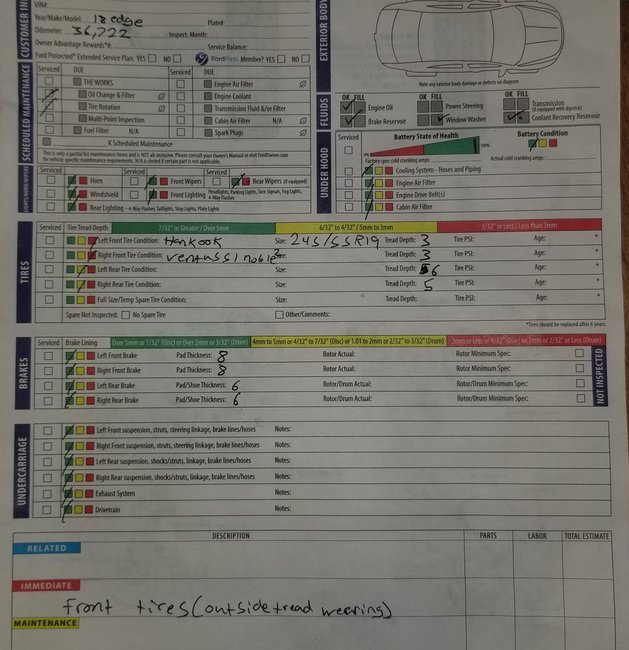 VIN#:
Year/Make/Model: 18 edge Plate#:
Odometer: 36,722 Inspect. Month:
Owner Advantage Rewards#: Service Balance:
Ford Protect® Extended Service Plan: YES NO FordPass Member? YES NO
CUSTOMER IN
EXTERIOR BODY
Note any exterior body damage or defects on diagram
SCHEDULED MAINTENANCE
Serviced DUE Serviced DUE
THE WORKS Engine Air Filter
Oil Change & Filter Engine Coolant
Tire Rotation Transmission Fluid &/or Filter
Multi-Point Inspection Cabin Air Filter N/A
Fuel Filter N/A Spark Plugs
K Scheduled Maintenance
This is only a partial list maintenance items and is NOT all-inclusive. Please consult your Owner's Manual or visit FordOwner.com
for vehicle specific maintenance requirements. N/A is circled if certain part is not applicable.
FLUIDS
OK FILL OK FILL OK FILL
Engine Oil Power Steering Transmission
(if equipped with dipstick)
Brake Reservoir Window Washer Coolant Recovery Reservoir
UNDER HOOD
Serviced Battery State of Health Battery Condition
0% 100%
Factory spec cold cranking amps Actual cold cranking amps
Cooling System - Hoses and Piping
Engine Air Filter
Engine Drive Belt(s)
Cabin Air Filter
LIGHTS/HORN/WIPERS
Serviced Serviced
Horn Front Wipers Rear Wipers (if equipped)
Windshield Front Lighting Headlights, Parking Lights, Turn Signals, Fog Lights, 4-Way Flasher
Rear Lighting - 4-Way Flasher, Taillights, Stop Lights, Plate Lights
TIRES
Serviced Tire Tread Depth 7/32" or Greater / Over 5mm 6/32" to 4/32" / 5mm to 3mm 3/32" or Less / Less than 3mm
Left Front Tire Condition: Hankook Size: 245/55R19 Tread Depth: 3 Tire PSI: Age: *
Right Front Tire Condition: ventus s1 noble2 Size: Tread Depth: 3 Tire PSI: Age: *
Left Rear Tire Condition: Size: Tread Depth: 6 Tire PSI: Age: *
Right Rear Tire Condition: Size: Tread Depth: 5 Tire PSI: Age: *
Full Size/Temp Spare Tire Condition: Size: Tread Depth: Tire PSI: Age: *
Spare Not Inspected: No Spare Tire Other/Comments:
*Tires should be replaced after 6 years.
BRAKES
Serviced Brake Lining Over 5mm or 7/32" (Disc) or Over 2mm or 3/32" (Drum) 4mm to 5mm or 4/32" to 7/32" (Disc) or 1.01 to 2mm or 2/32" to 3/32" (Drum) 3mm or Less or 4/32" (Disc) or 1mm or 2/32" or Less (Drum)
Left Front Brake Pad Thickness: 8 Rotor Actual: Rotor Minimum Spec:
Right Front Brake Pad Thickness: 8 Rotor Actual: Rotor Minimum Spec:
Left Rear Brake Pad/Shoe Thickness: 6 Rotor/Drum Actual: Rotor/Drum Minimum Spec:
Right Rear Brake Pad/Shoe Thickness: 6 Rotor/Drum Actual: Rotor/Drum Minimum Spec:
NOT INSPECTED
UNDERCARRIAGE
Left Front suspension, struts, steering linkage, brake lines/hoses Notes:
Right Front suspension, struts, steering linkage, brake lines/hoses Notes:
Left Rear suspension, shocks/struts, linkage, brake lines/hoses Notes:
Right Rear suspension, shocks/struts, linkage, brake lines/hoses Notes:
Exhaust System Notes:
Drivetrain Notes:
DESCRIPTION PARTS LABOR TOTAL ESTIMATE
RELATED
IMMEDIATE
front tires (outside tread wearing)
MAINTENANCE